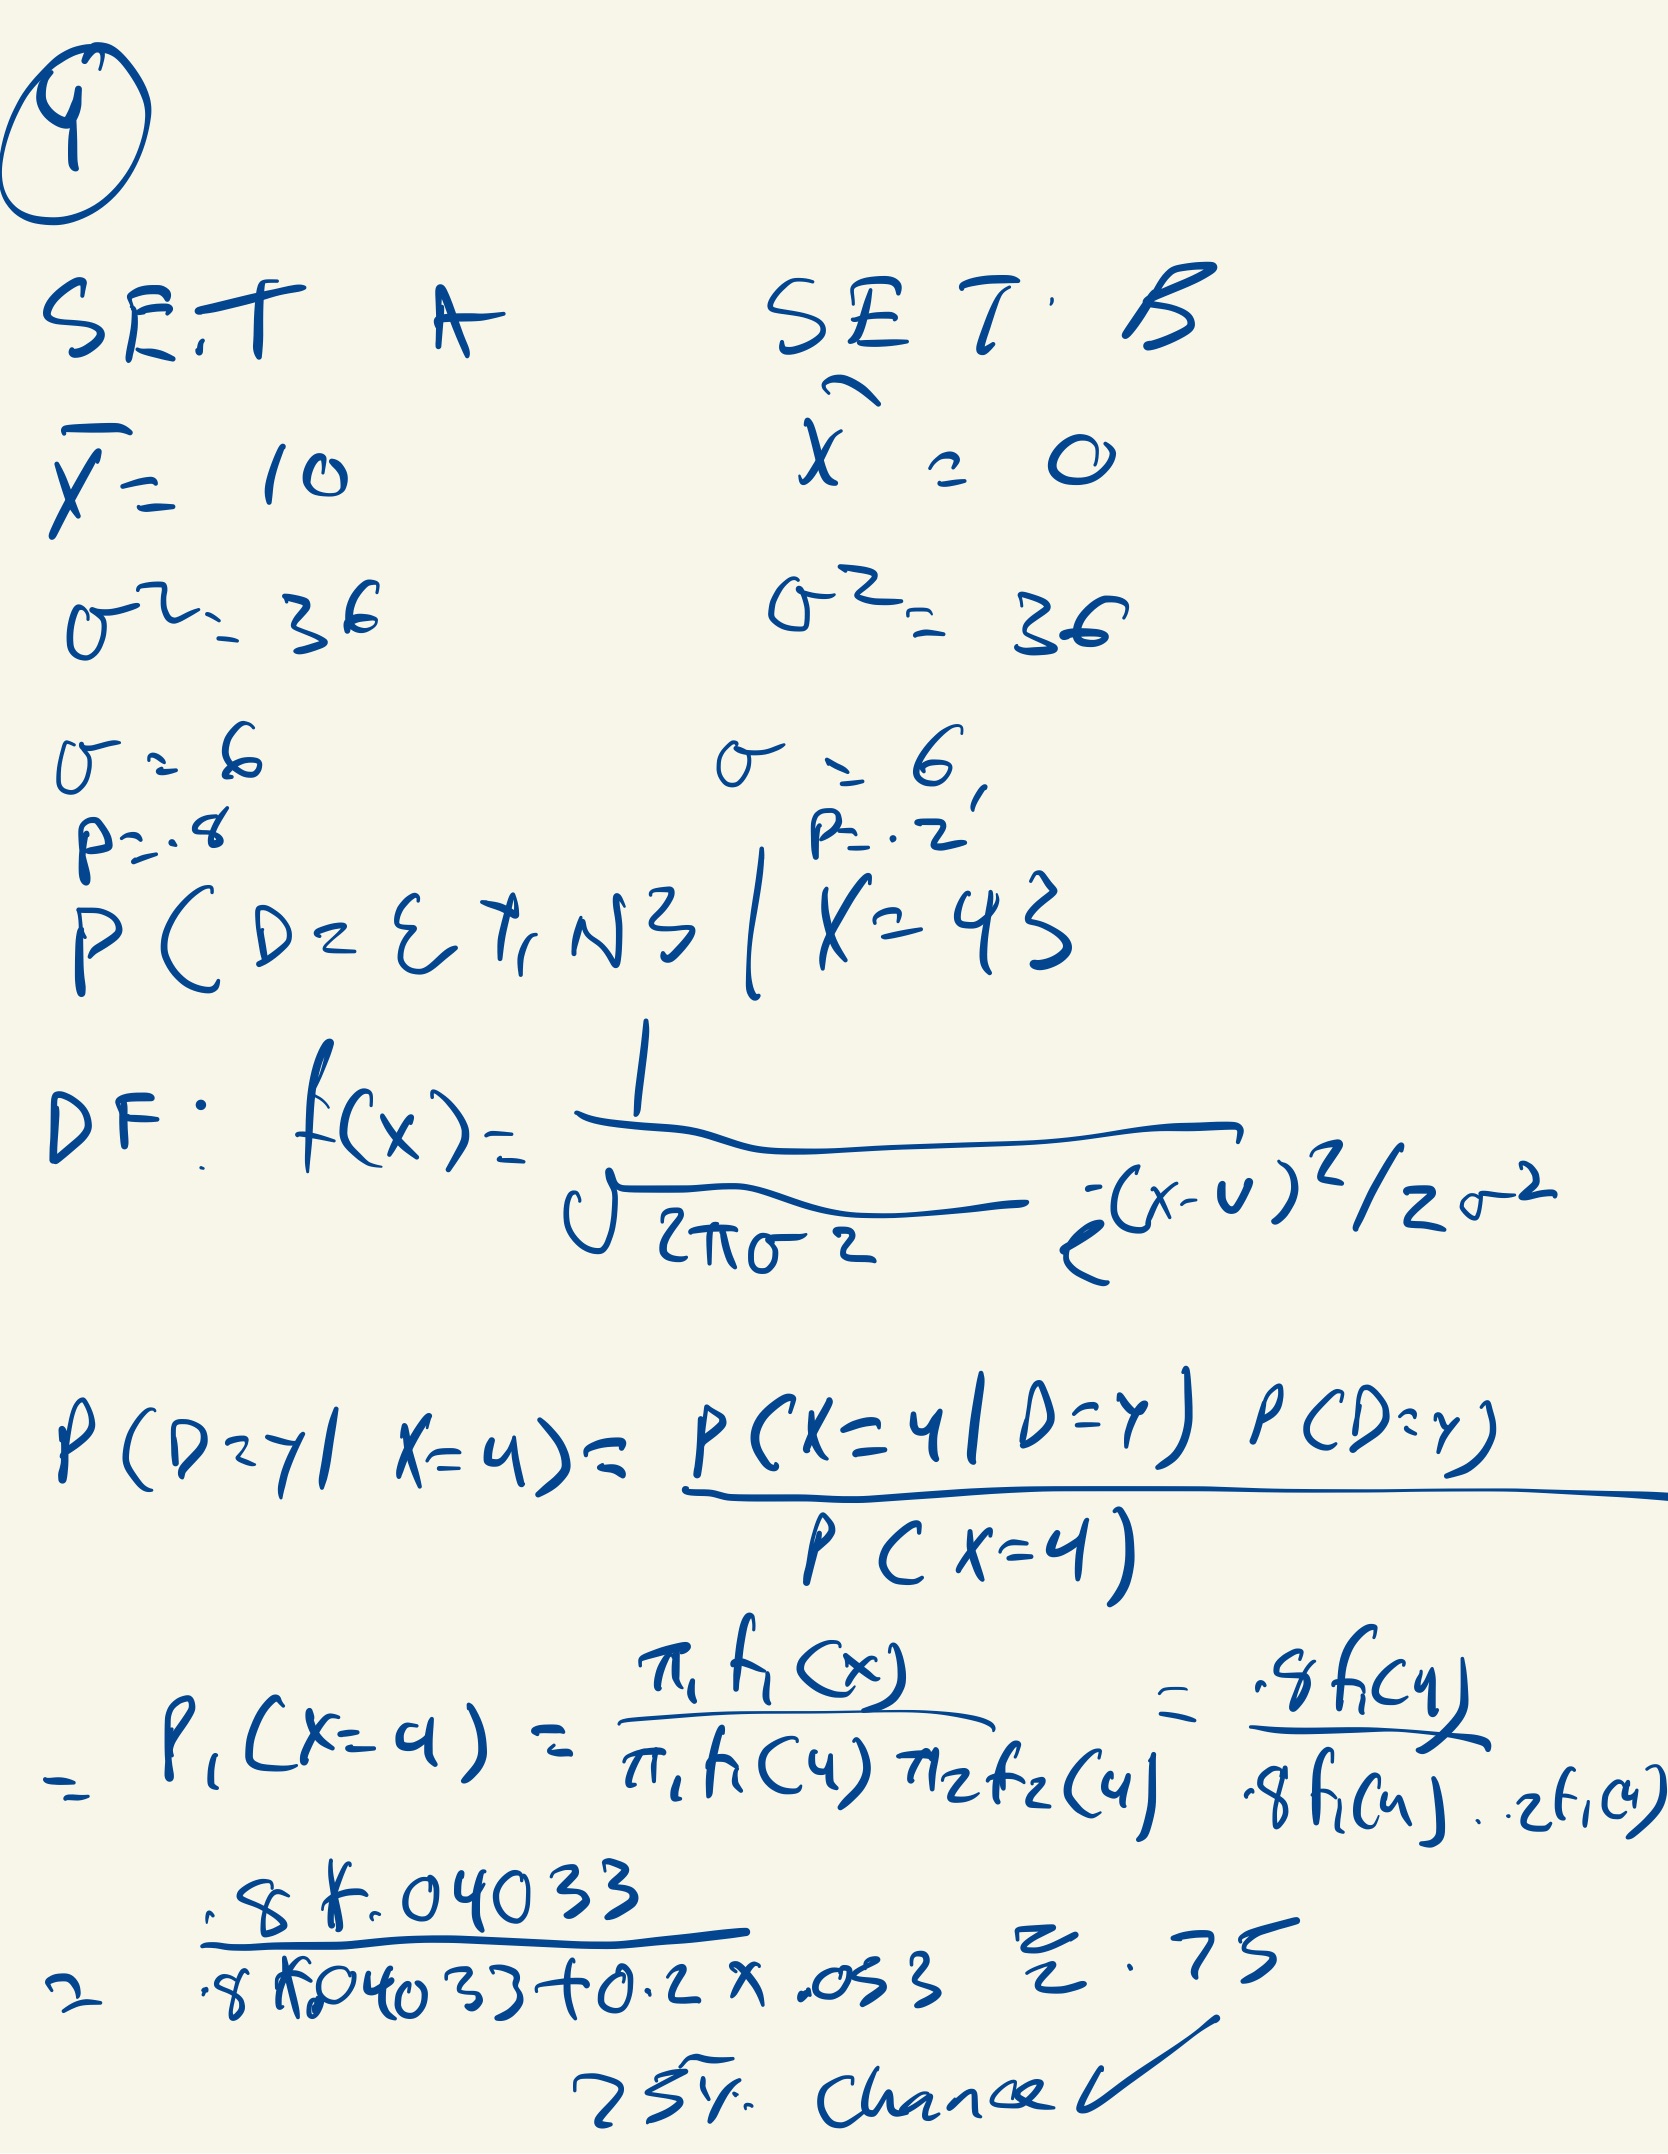 4
SET A SET B
X̄ = 10 X̄ = 0
σ² = 36 σ² = 36
σ = 6 σ = 6
P = .8 P = .2
P(D = {Y, N} | X = 4}
DF: f(x) = 1 / √2πσ² e^-(x-υ)²/2σ²
P(D = Y | X = 4) = P(X = 4 | D = Y) P(D = Y) / P(X = 4)
= P₁(X = 4) = π₁f₁(x) / π₁f₁(4) π₂f₂(4) = .8f₁(4) / .8f₁(4) . .2f₁(4)
= .8 * .04033 / .8 * .04033 + 0.2 x .053 ≈ .75
75% chance ✓